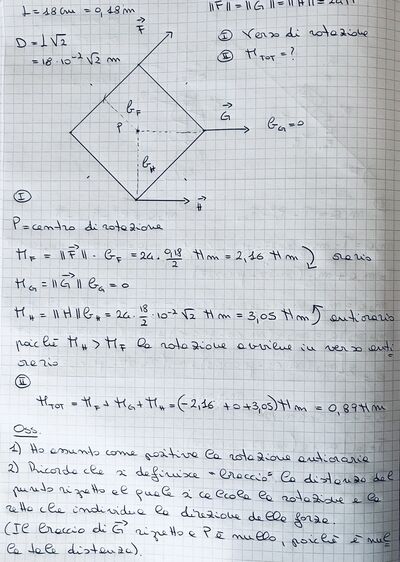 L = 18 cm = 0,18 m
D = L√2
= 18·10⁻²√2 m
||F|| = ||G|| = ||H|| = 24
Ⓘ Verso di rotazione
Ⓘⓘ M_TOT = ?
F
b_F
P
G
b_G = 0
b_H
H
Ⓘ
P = centro di rotazione
M_F = ||F|| · b_F = 24 · 0,18/2 Nm = 2,16 Nm ) orario
M_G = ||G|| b_G = 0
M_H = ||H|| b_H = 24 · 18/2 · 10⁻²√2 Nm = 3,05 Nm ) antiorario
poiché M_H > M_F la rotazione avviene in verso anti
orario
Ⓘⓘ
M_TOT = M_F + M_G + M_H = (-2,16 + 0 + 3,05) Nm = 0,89 Nm
Oss.
1) Ho assunto come positiva la rotazione antioraria
2) Ricordo che si definisce "braccio" la distanza del
punto rispetto al quale si calcola la rotazione e la
retta che individua la direzione della forza.
(Il braccio di G rispetto a P è nullo, poiché è nul
la tale distanza).